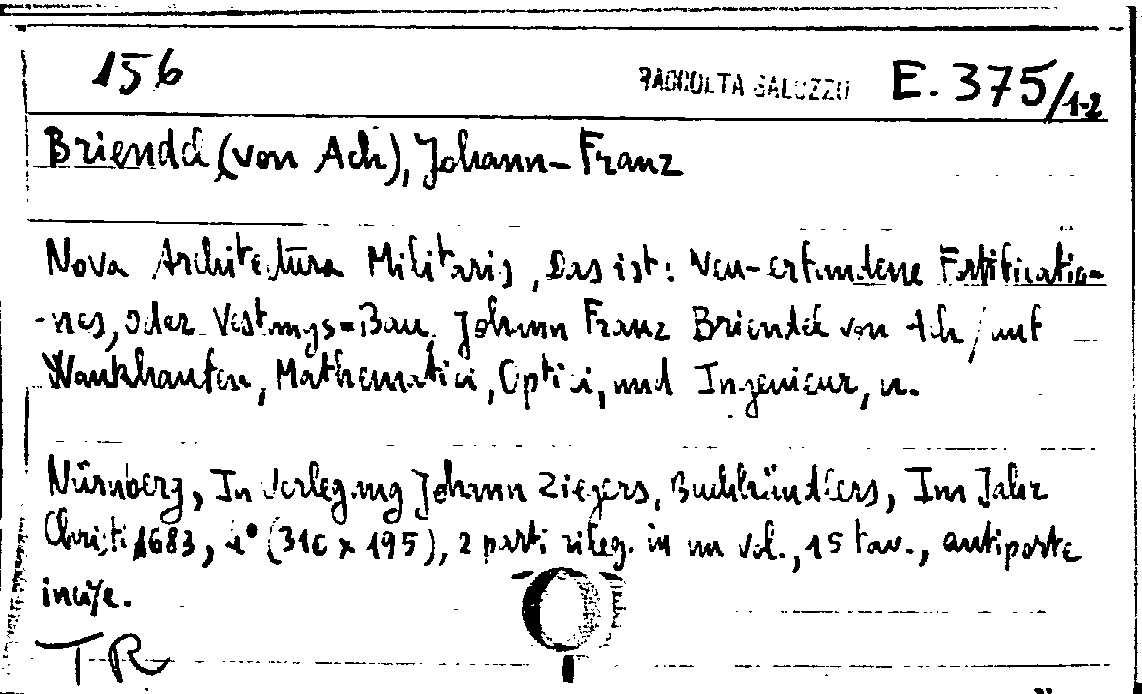 156 RACCOLTA SALUZZO E. 375/1-2
Briendel (von Ach), Johann-Franz
Nova Architectura Militaris, Das ist: Neu-erfundene Fortificatio-
-nes, oder Vestungs=Bau, Johann Franz Briendel von Ach / auf
Wankhausen, Mathematici, Optici, und Ingenieur, n.
Nürnberg, In Verlegung Johann Ziegers, Buchhändlers, Im Jahr
Christi 1683, 4° (310 x 195), 2 parti rileg. in un vol., 15 tav., antiporte
incise.
TR